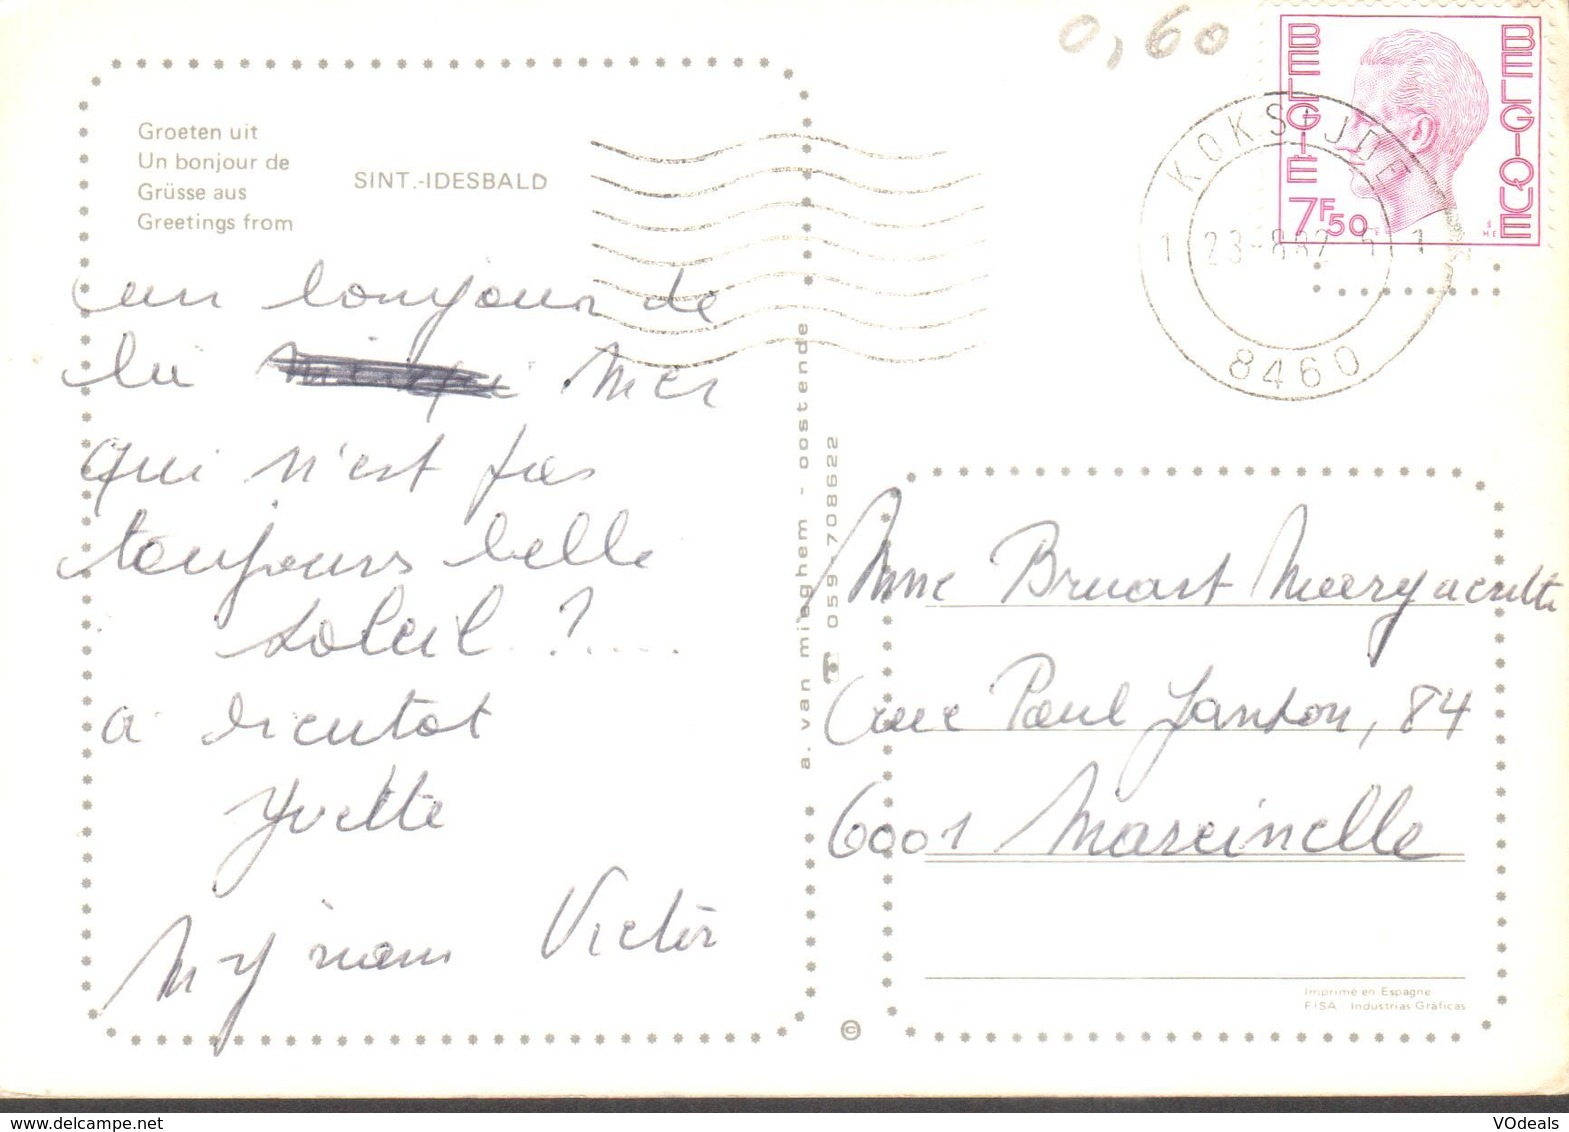 0,60
BELGIE
BELGIQUE
7F50
KOKSIJDE
8460
Groeten uit
Un bonjour de
Grüsse aus
Greetings from
SINT.-IDESBALD
un bonjour de
la mer
qui n'est pas
toujours belle
soleil ?.....
a bientot
Yvette
Myriam Victor
a. van mieghem - oostende
059 - 708622
Mme Bruart Marguerite
rue Paul Janson, 84
6001 Marcinelle
Imprimé en Espagne
FISA Industrias Gráficas
©
VOdeals